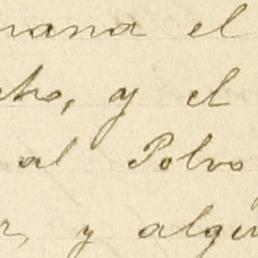 mana el
cho, y el
al Polvo
r, y algu